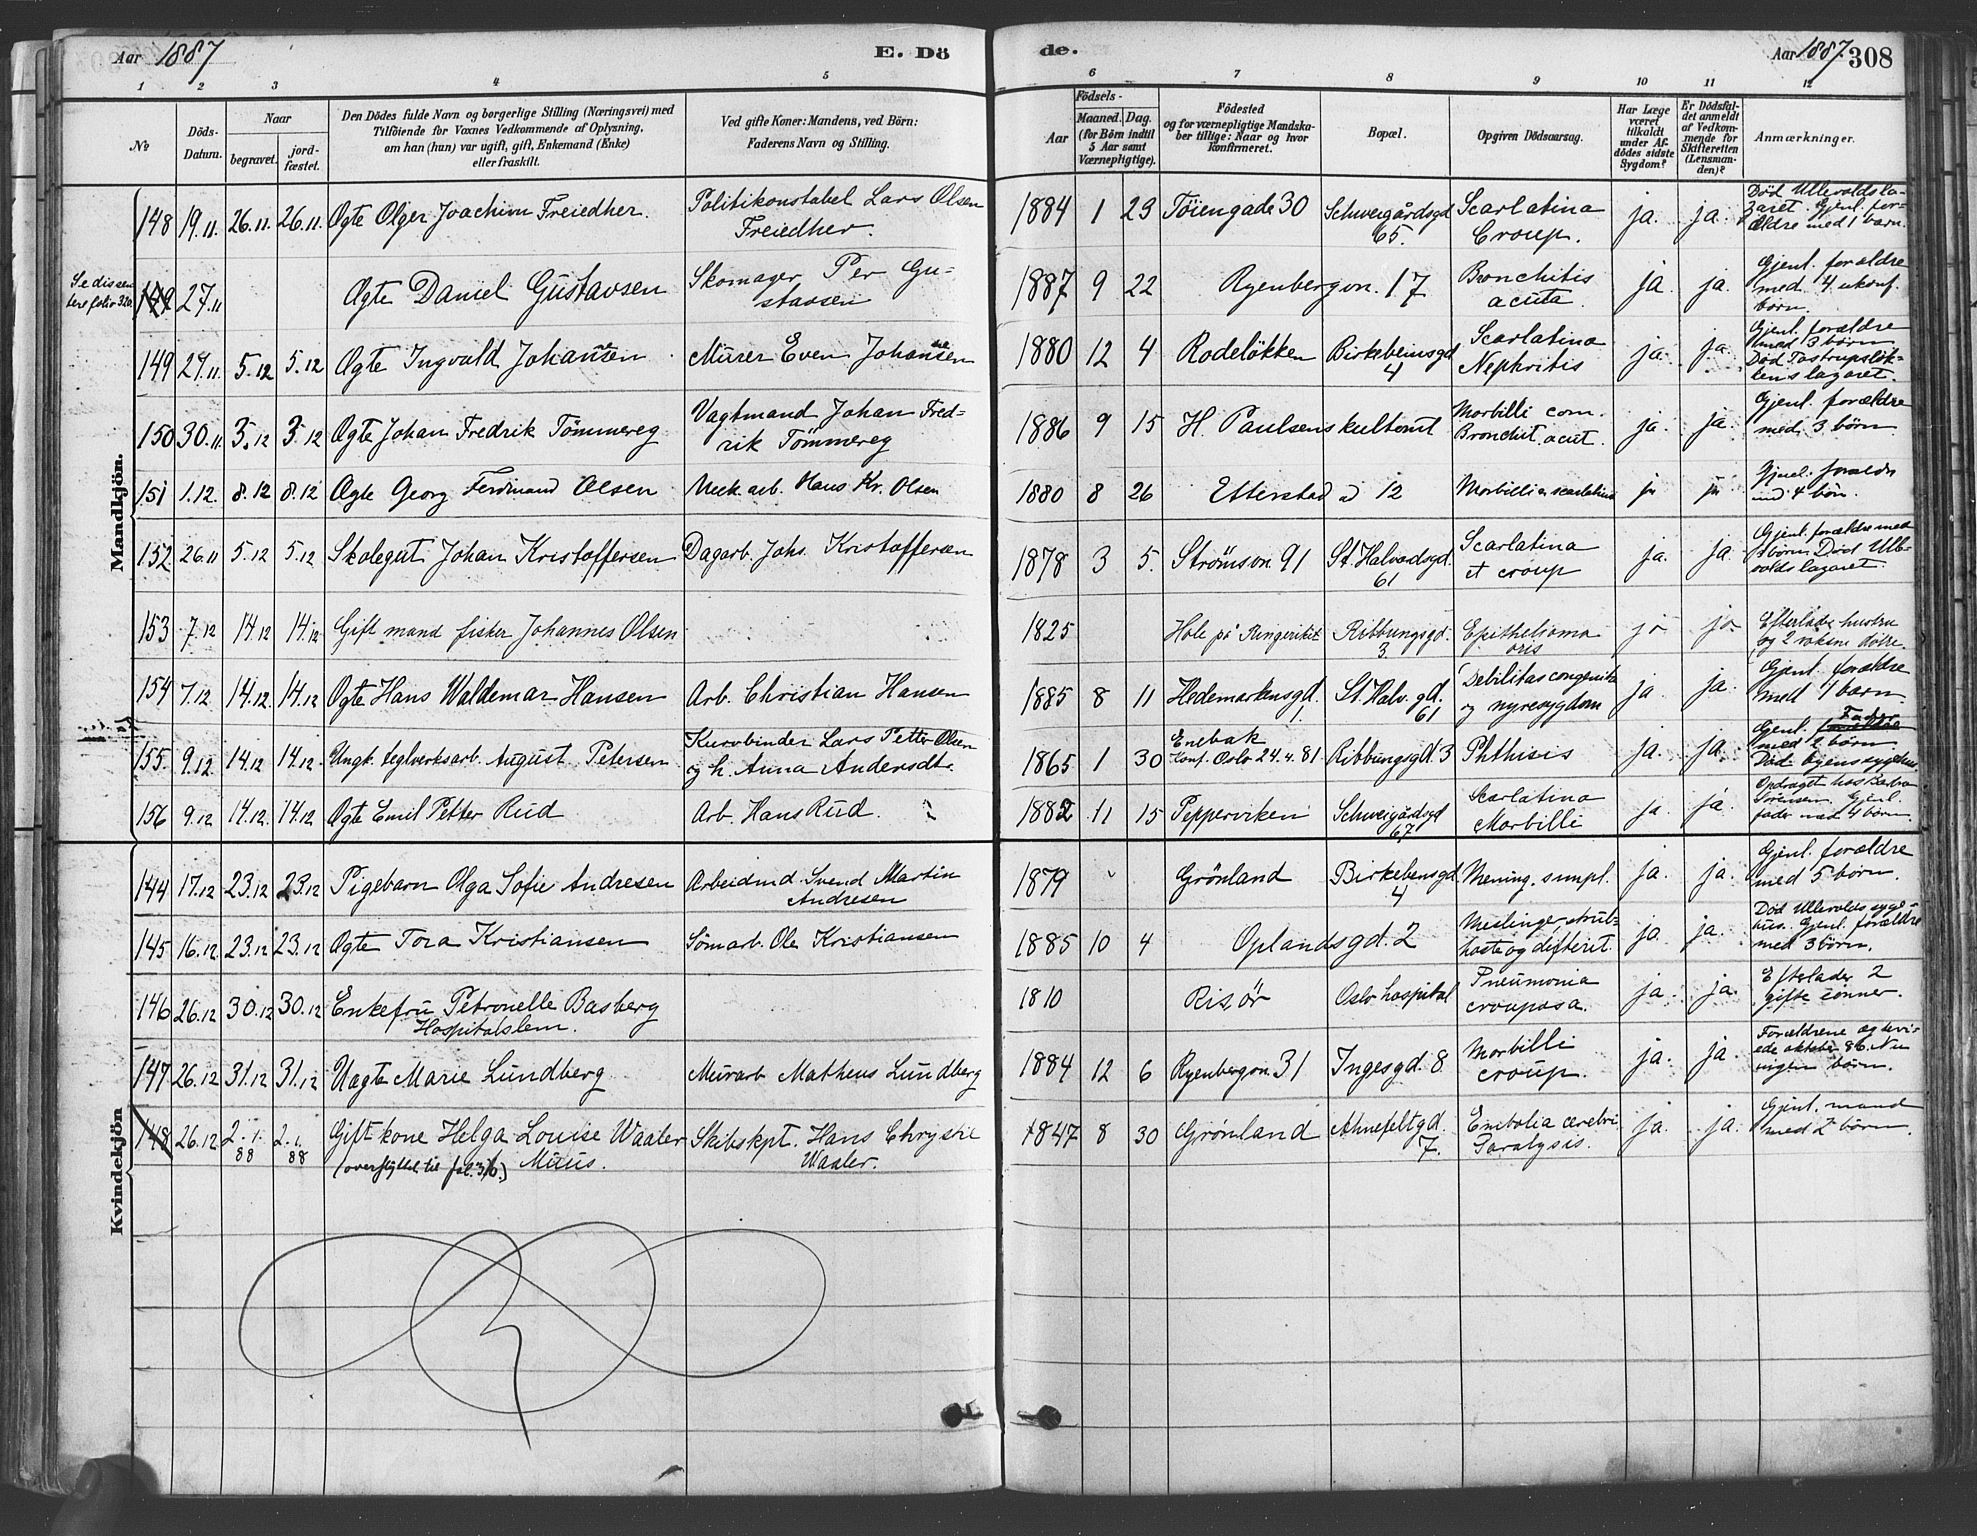 Aar 1887
E. Dö
de.
Aar 1887. 308
1 2 3 4 5 6 7 8 9 10 11 12
No
Döds-Datum.
Naar
begravet.
jord-fæstet.
Den Dödes fulde Navn og borgerlige Stilling (Næringsvei) med
Tilföiende for Voxnes Vedkommende af Oplysning,
om han (hun) var ugift, gift, Enkemand (Enke)
eller fraskilt.
Ved gifte Koner: Mandens, ved Börn:
Faderens Navn og Stilling.
Födsels-
Aar
Maaned. Dag.
(for Börn indtil
5 Aar samt
Værnepligtige).
Födested
og for værnepligtige Mandska-
ber tillige: Naar og hvor
konfirmeret.
Bopæl.
Opgiven Dödsaarsag.
Har Læge
været
tilkaldt
under Af-
dödes sidste
Sygdom?
Er Dödsfal-
det anmeldt
af Vedkom-
mende for
Skifteretten
(Lensman-
den)?
Anmærkninger.
Mandkjön.
148 19.11. 26.11. 26.11. Ægte Olger Joachim Freiedher. Politikonstabel Lars Olsen Freiedher. 1884 1 23 Töiengade 30 Schweigårdsgd 65. Scarlatina Croup. ja. ja. Död Ullevolds lazaret. Gjenl. forældre med 1 barn.
149 27.11 Ægte Daniel Gustavsen Skomager Per Gustavsen 1887 9 22 Ryenbergvn. 17 Bronchitis acuta. ja. ja. Gjenl. forældre med 4 ukonf. börn.
149 27.11. 5.12 5.12 Ægte Ingvald Johansen Murer Even Johansen 1880 12 4 Rodelökken Birkebeinsgd 4 Scarlatina Nephritis ja. ja. Gjenl. forældre med 3 börn. Död Tostrupslökkens lazaret.
150 30.11 3.12 3.12 Ægte Johan Fredrik Tömmereg Vagtmand Johan Fredrik Tömmereg 1886 9 15 H. Paulsens kultomt Morbilli com. Bronchit. acut. ja. ja. Gjenl. forældre med 3 börn
151 1.12. 8.12 8.12 Ægte Georg Ferdinand Olsen Mek. arb. Hans Kr. Olsen 1880 8 26 Etterstad a 12 Morbilli & scarlatina ja ja. Gjenl. forældre med 4 börn.
152 26.11 5.12 5.12 Skolegut Johan Kristoffersen Dagarb. Johs. Kristoffersen 1878 3 5. Strömsvn 91 St. Halvardsgd. 61 Scarlatina et croup ja. ja. Gjenl. forældre med börn Död Ullevolds lazaret.
153 7.12 14.12 14.12 Gift mand fisker Johannes Olsen 1825 Hole på Ringerike Ribbungsgd. 3. Epithelioma oris ja ja Efterlader hustru og 2 voksne dötre.
154 7.12. 14.12. 14.12 Ægte Hans Waldemar Hansen Arb. Christian Hansen 1885 8 11 Hedemarkensgd. 1. St. Halv. gd. 61 Debilitas congenita og nyresygdom ja. ja. Gjenl. forældre med 1 barn.
155 9.12 14.12 14.12. Ungk. teglverksarb. August Petersen Kurvbinder Lars Petter Olsen og h. Anna Andersdt. 1865 1 30 Enebak Conf. Oslo 24.4.81 Ribbungsgd 3 Phthisis ja. ja. Gjenl. Fader med 2 börn. Död byens sygehus
156 9.12 14.12. 14.12 Ægte Emil Petter Rud Arb. Hans Rud. 1882 11 15 Peppervirken Schweigårdsgd 67 Scarlatina Morbilli ja ja. Opdraget hos Sörensen. Gjenl. fader med 4 börn
Kvindekjön
144 17.12 23.12 23.12 Pigebarn Olga Sofie Andresen Arbeidmd. Svend Martin Andresen 1879 Grönland Birkebensgd 4 Mening. simpl. ja. ja. Gjenl. forældre med 5 börn.
145 16.12 23.12 23.12 Ægte Tora Kristiansen Sömarb. Ole Kristiansen 1885 10 4 Oplandsgd. 2 Meslinger, strubhoste og difterit. ja. ja. Död Ullevolds sygehus. Gjenl. forældre med 3 börn.
146 26.12 30.12 30.12 Enkefru Petronelle Basberg Hospitalslem. 1810 Risör Oslo hospital Pneumonia crouposa. ja. ja. Efterlader 2 gifte sönner.
147 26.12 31.12 31.12 Uægte Marie Lundberg Murarb Matheus Lundberg 1884 12 6 Ryenbergvn 31 Ingesgd. 8 Morbilli croup. ja. ja. Forældrene ægteviede oktober 86. Nu ingen börn.
148 26.12 2.1.88 2.1.88 Gift kone Helga Louise Waaler Muus. (overflyttet til fol. 316.) Skibskpt. Hans Chrystie Waaler. 1847 8 30 Grönland Ahnefeltgd. 7. Embolia cerebri Paralysis. ja. ja. Gjenl. mand med 2 börn.